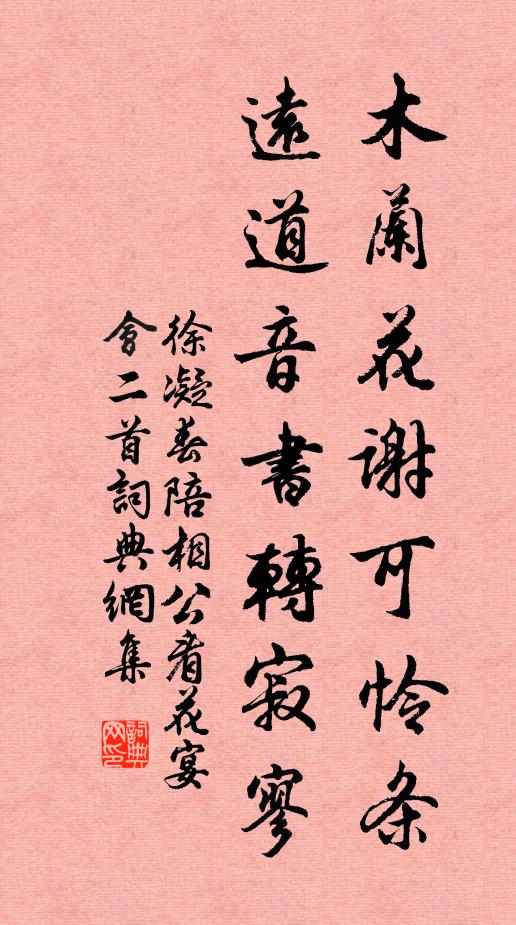 木蘭花謝可怜条
遠道音書轉寂寥
徐凝春陪相公看花宴
會二首詞典網集
詞典网印